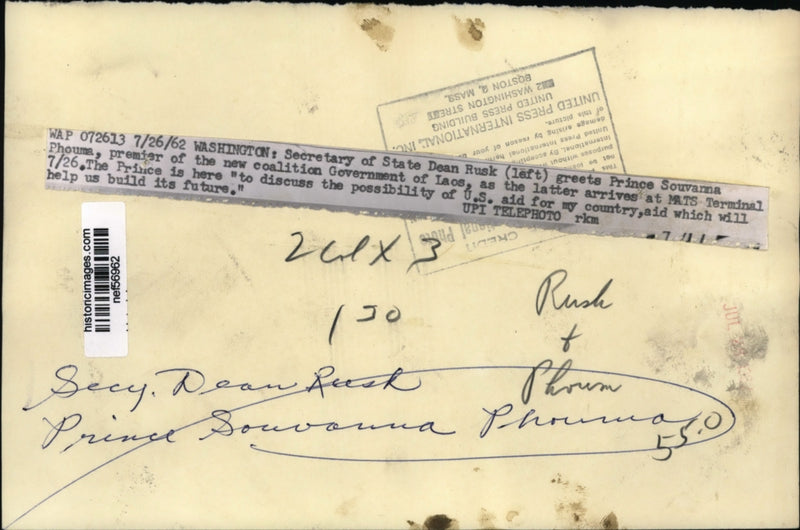 WAP 072613 7/26/62 WASHINGTON: Secretary of State Dean Rusk (left) greets Prince Souvanna
Phouma, premier of the new coalition Government of Laos, as the latter arrives at MATS Terminal
7/26. The Prince is here "to discuss the possibility of U.S. aid for my country, aid which will
help us build its future."
UPI TELEPHOTO rkm
UNITED PRESS INTERNATIONAL, INC.
UNITED PRESS BUILDING
WASHINGTON STREET
BOSTON 2, MASS.
of this picture.
damage arising by reason of your
CREDIT
historicimages.com
nef56962
2 col X 3
130
Rusk
+
Phoum
Secy. Dean Rusk
Prince Souvanna Phouma
JUL